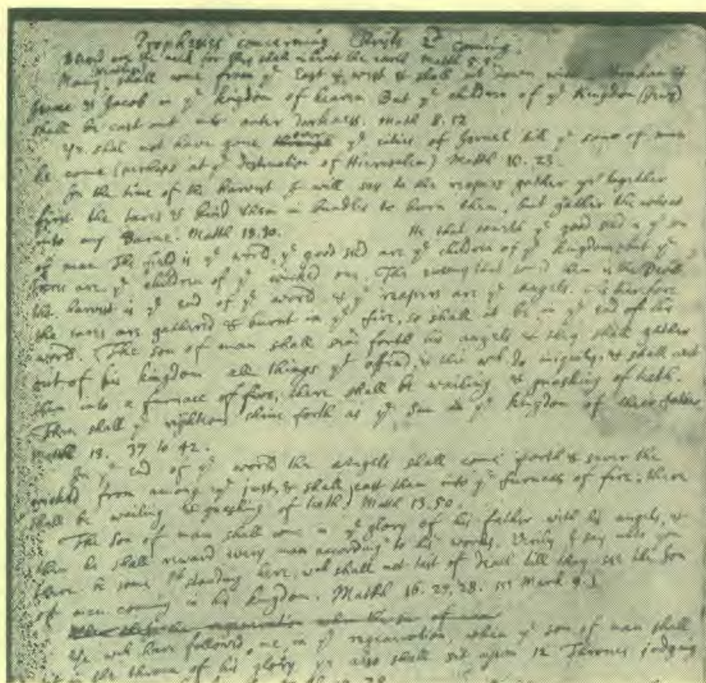 Prophesies concerning Christs 2d coming.
Blessed are the meek for they shall inherit the earth Matth 5.5.
Many shall come from ye East & west & shall sit down with Abraham &
Isaac & Jacob in ye kingdom of heaven But ye children of ye Kingdom
shall be cast out into outer darkness. Math 8.12
Ye shal not have gone over ye cities of Israel till ye sone of man
be come (perhaps at ye destruction of Hierusalem) Matth 10.23.
In the time of the harvest I will say to the reapers gather ye together
first the tares & bind them in bundles to burn them, but gather the wheat
into my Barne. Matth 13.30. He that soweth ye good seed is ye son
of man The field is ye world, ye good seed are ye children of ye kingdom but ye
tares are ye children of ye wicked one. The enemy that sowed them is the Devil
the harvest is ye end of ye world & ye reapers are ye angels. As therefore
the tares are gathered & burnt in ye fire, so shall it be in ye end of this
world. The son of man shall send forth his angels & they shall gather
out of his kingdom all things yt offend, & them wch do iniquity, & shall cast
them into a furnace of fire, there shall be wailing & gnashing of teeth.
Then shall ye righteous shine forth as ye Sun in ye kingdom of their father
Matth 13. 37 to 42.
In ye end of ye world the Angels shall come forth & sever the
wicked from among ye just, & shall cast them into ye furnace of fire: there
shall be wailing & gnashing of teeth Math 13.50.
The son of man shall come in ye glory of his father with his angels, &
then he shall reward every man according to his works. Verily I say unto you
there be some standing here, wch shall not tast of death till they see the Son
of man coming in his kingdom. Matth 16.27,28. Mark 9.1
Ye wch have followed me in ye regeneration, when ye son of man shall
sit in the throne of his glory ye also shall sit upon 12 Thrones judging